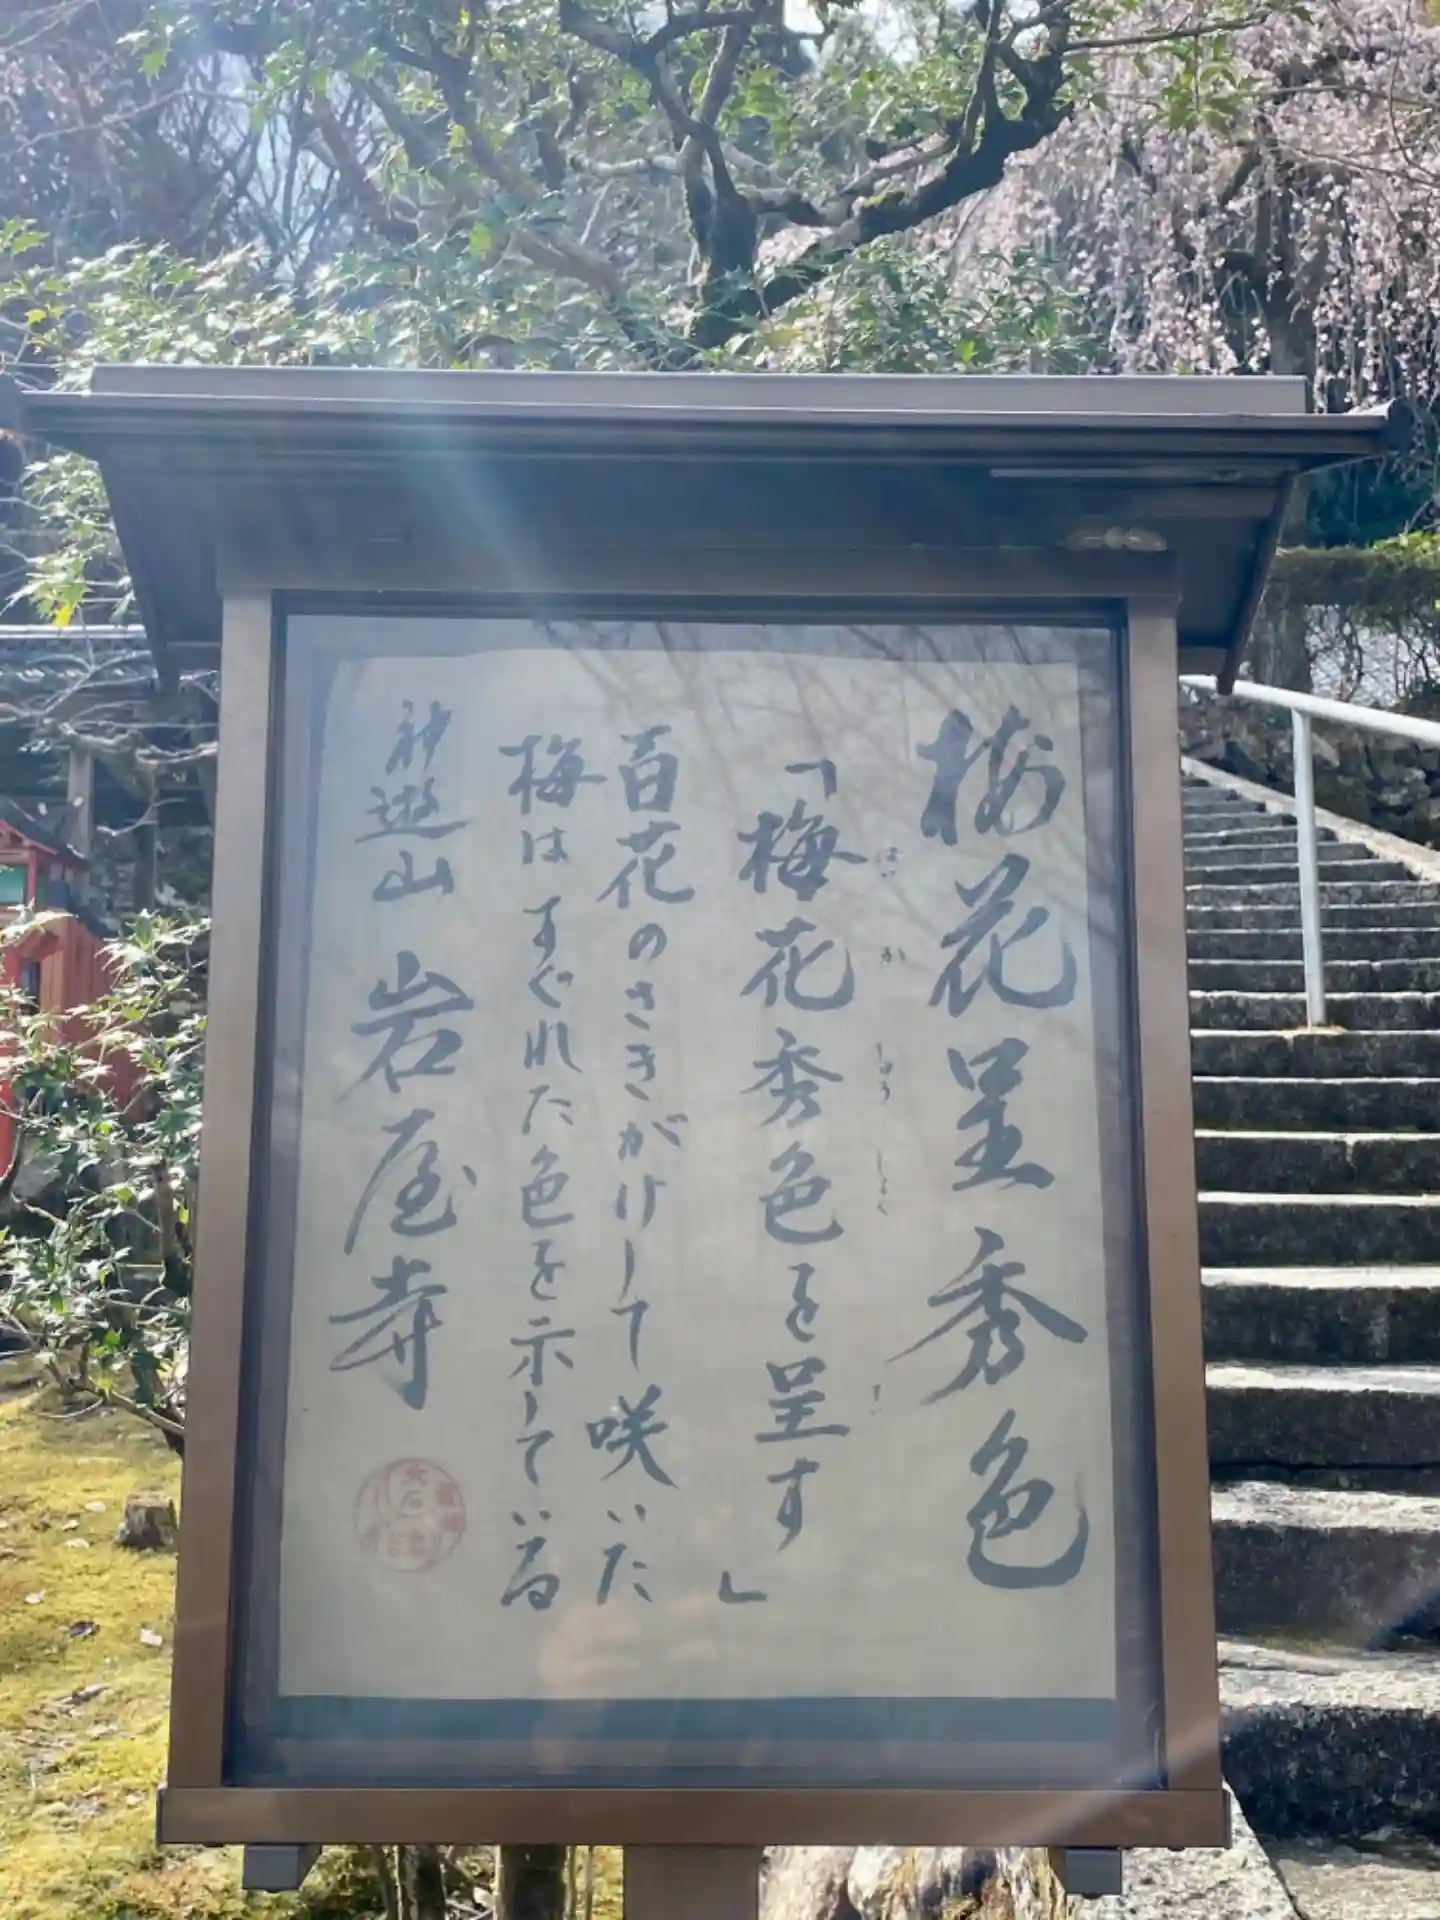 梅花呈秀色
「梅花秀色を呈す」
ばい か しゅう しょく
百花のさきがけして咲いた
梅はすぐれた色を示している
神遊山 岩屋寺